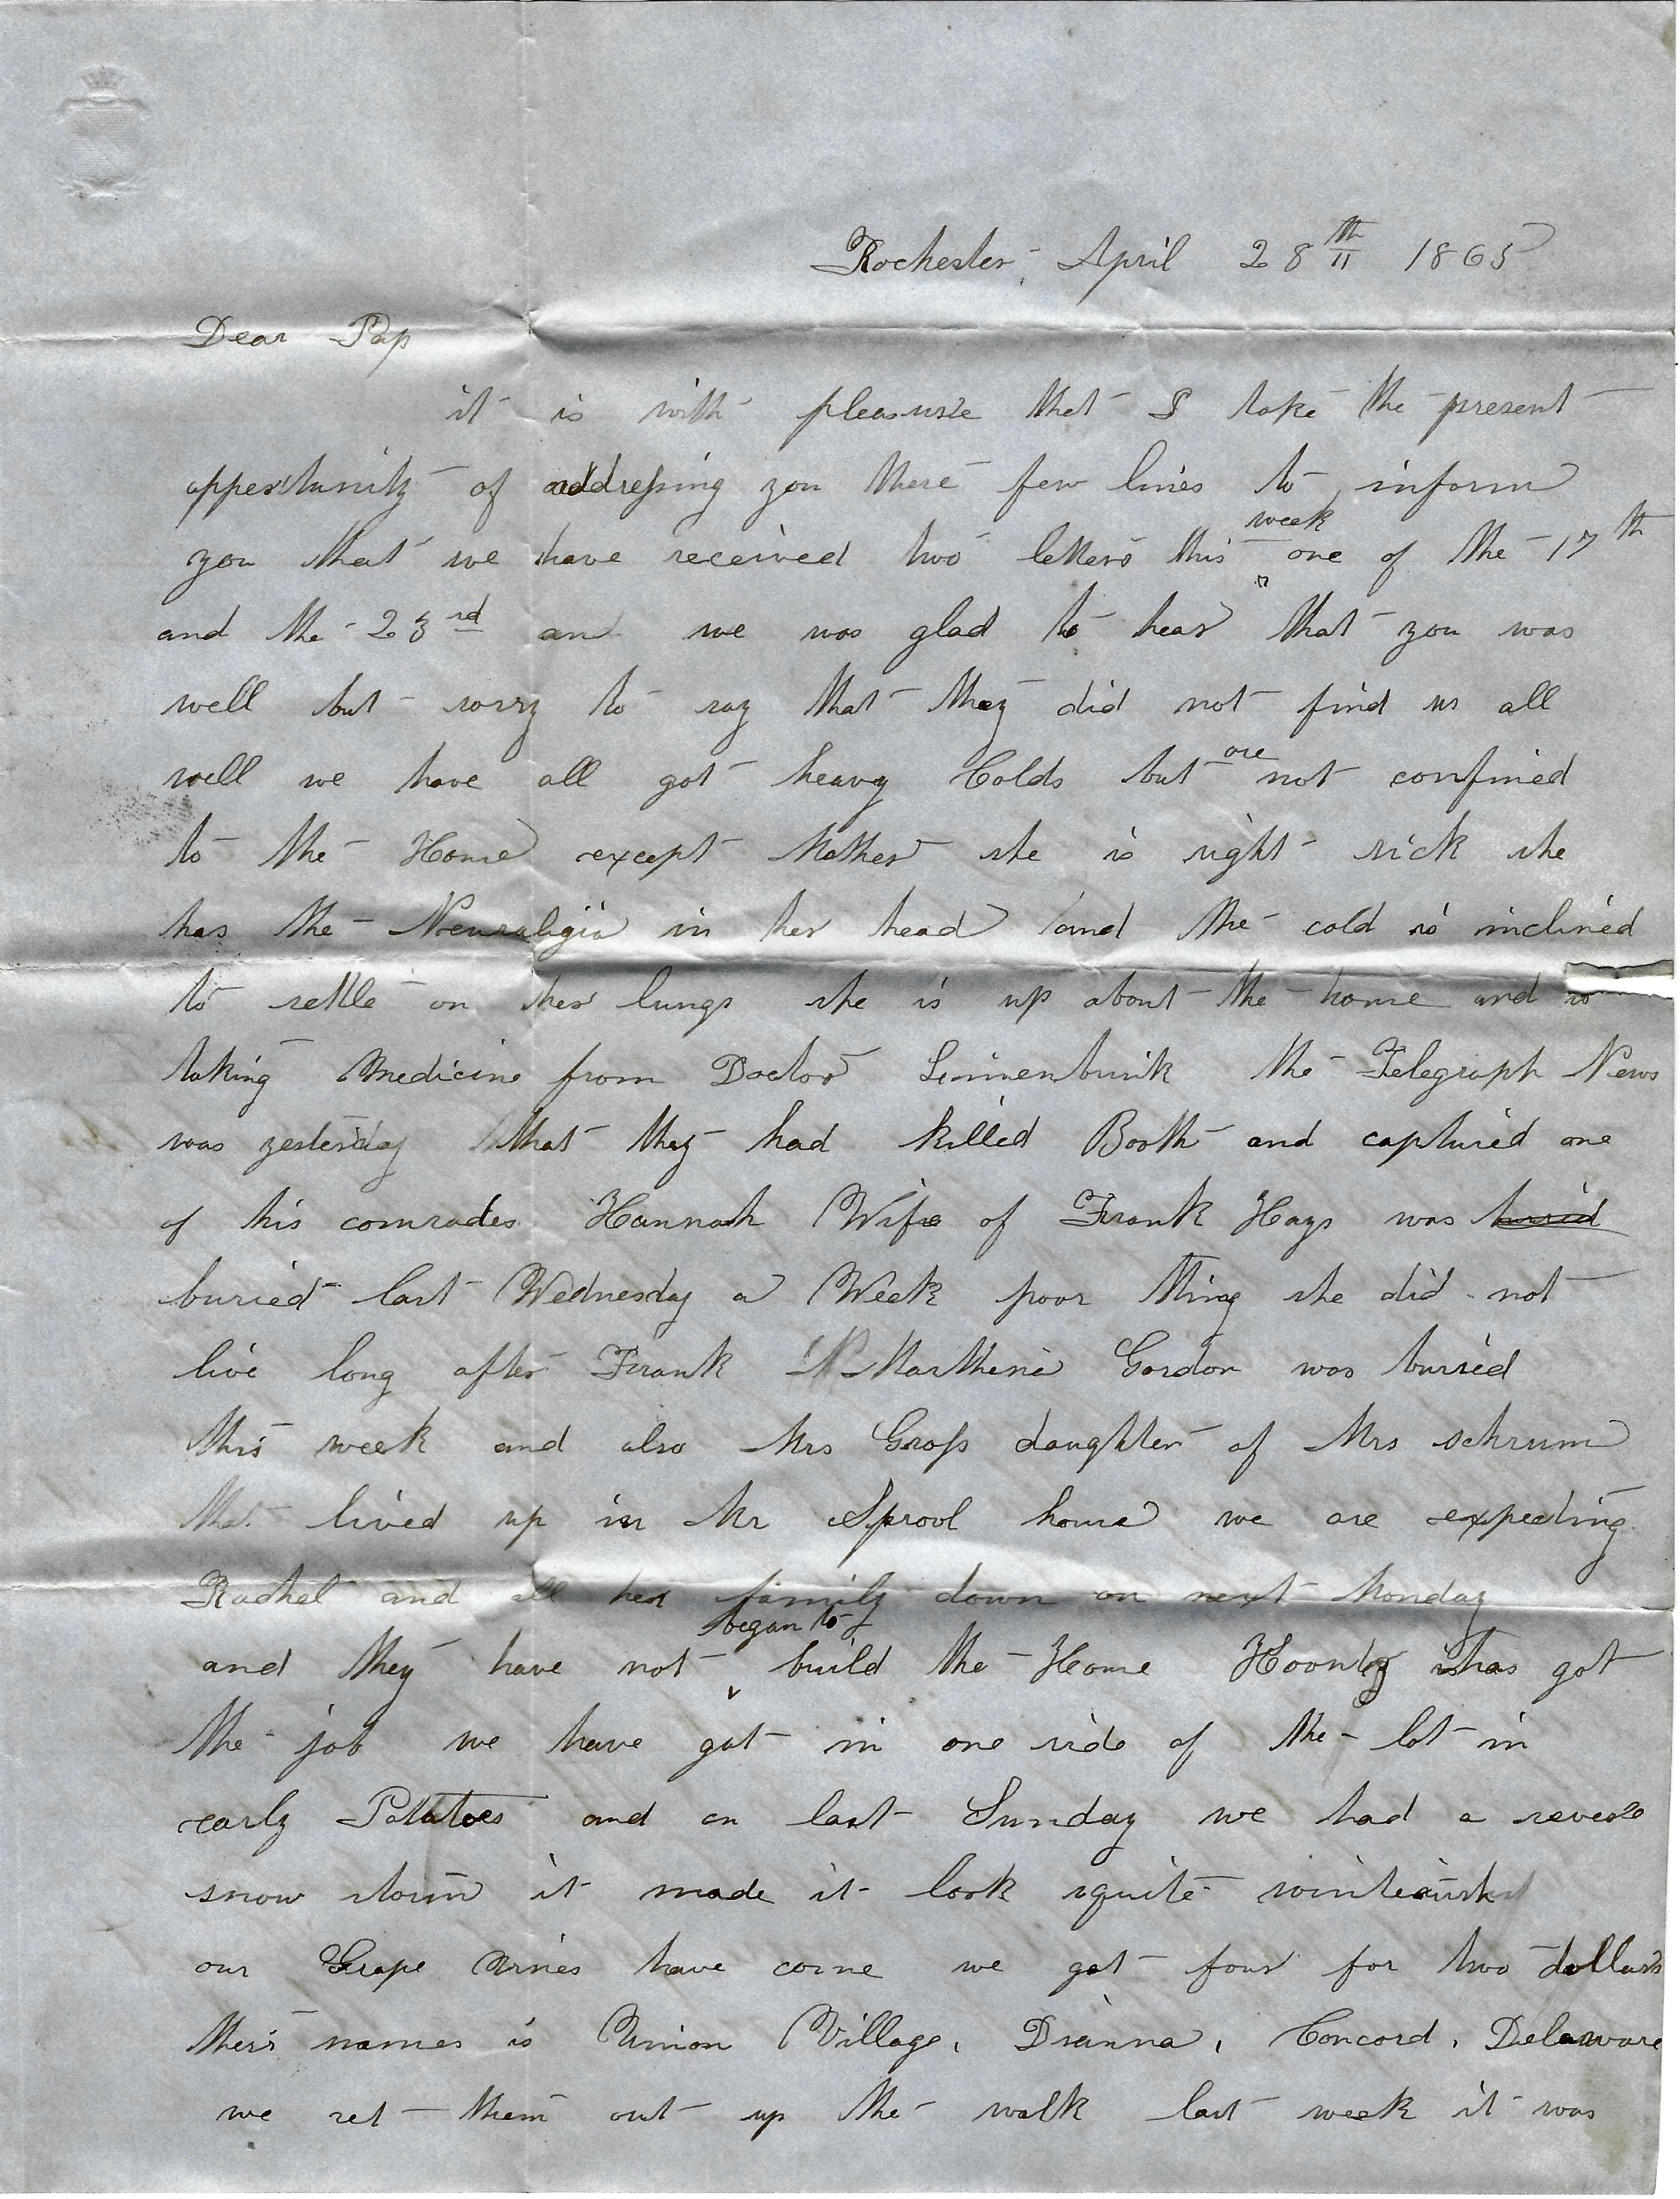 Rochester April 28th 1865
Dear Pap
it is with pleasure that I take the present
oppertunity of addressing you these few lines to inform
you that we have received two letters this week one of the 17th
and the 23rd and we was glad to hear that you was
well but sorry to say that they did not find us all
well we have all got heavy Colds but are not confined
to the House except Mother she is right sick she
has the Neuraligia in her head and the cold is inclined
to settle on her lungs she is up about the house and is
taking Medicine from Doctor Linnenbrink the Telegraph News
was yesterday that they had killed Booth and captured one
of his comrades Hannah Wife of Frank Hays was
buried last Wednesday a Week poor thing she did not
live long after Frank Marthena Gordon was buried
this week and also Mrs Gross daughter of Mrs schrum
that lived up in Mr Sprool house we are expecting
Rachel and all her family down on next Monday
and they have not began to build the House has got
the job we have got in one side of the lot in
early Potatoes and on last Sunday we had a severe
snow storm it made it look quite
our Grape vines have come we got four for two dollars
their names is Union Village, Dianna, Concord, Delaware
we set them out up the walk last week it was